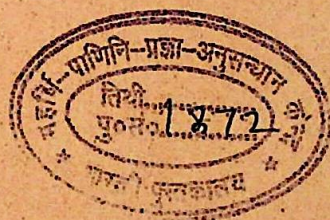 महर्षि-पाणिनि-प्रज्ञा-अनुसन्धान केन्द्र
तिथी..............
पु०सं०..1872
पुस्तकालय